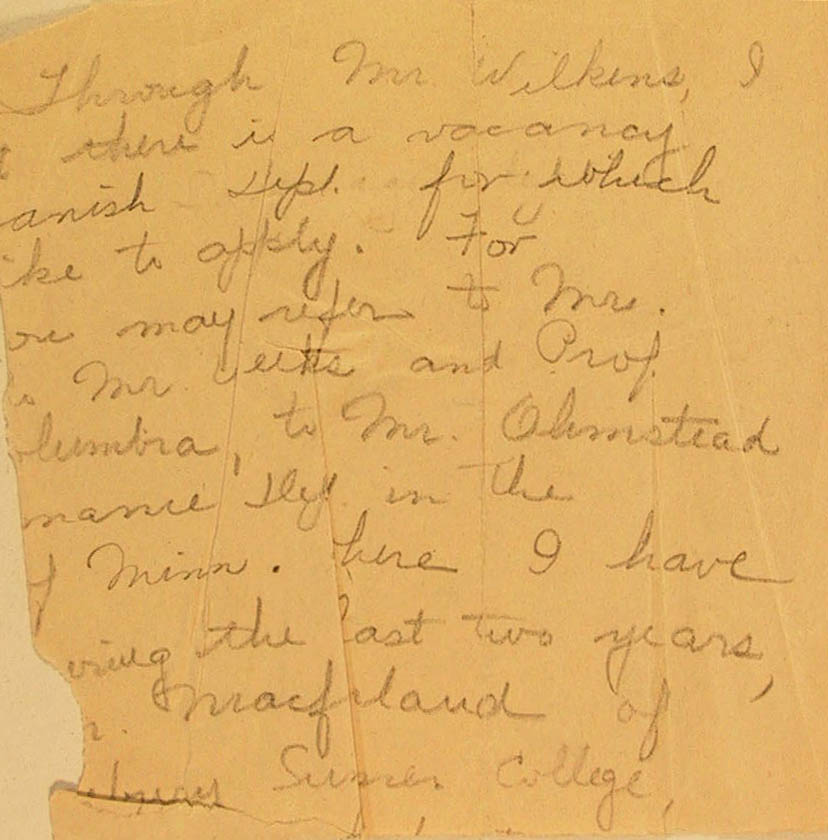 Through Mr. Wilkens, I
there is a vacancy
anish Dept. for which
ike to apply. For
may refer to Mrs.
Mr. and Prof.
olumbia, to Mr. Olmstead
mance Dept. in the
f Minn. here I have
the last two years,
r. of
Summer College,